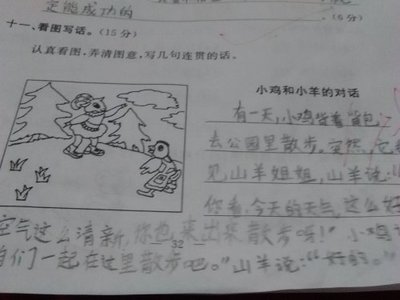 定能成功的
。(6分)
十一、看图写话。(15分)
认真看图,弄清图意,写几句连贯的话。
小鸡和小羊的对话
有一天,小鸡背着背包,
去公园里散步。突然,它
见,山羊姐姐,山羊说:“
你看,今天的天气这么好
空气这么清新,你也来出来散步呀!”小鸡
32
们一起在这里散步吧。”山羊说:“好的。”